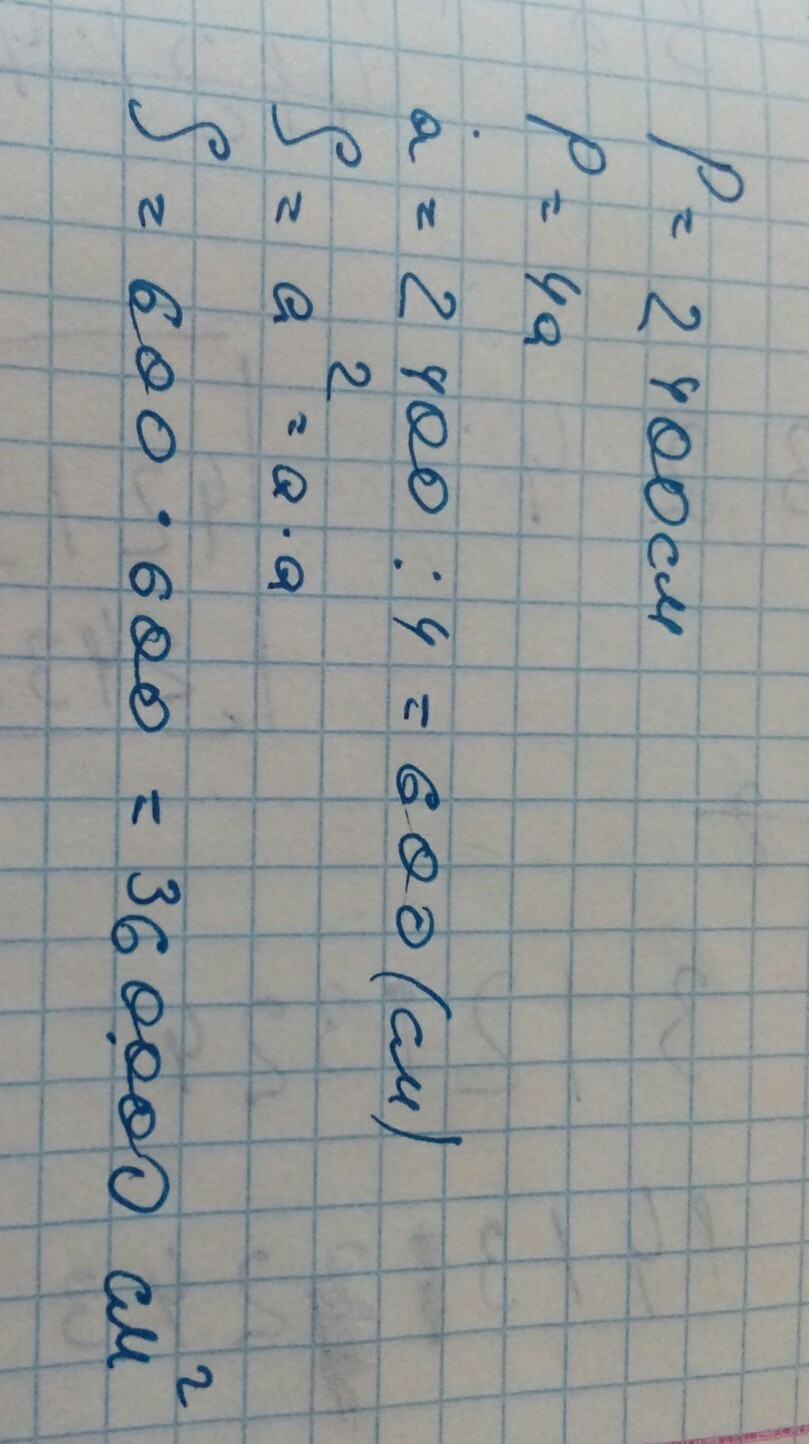 P = 2400 см
P = 4a
a = 2400 : 4 = 600 (см)
S = a² = a · a
S = 600 · 600 = 360000 см²